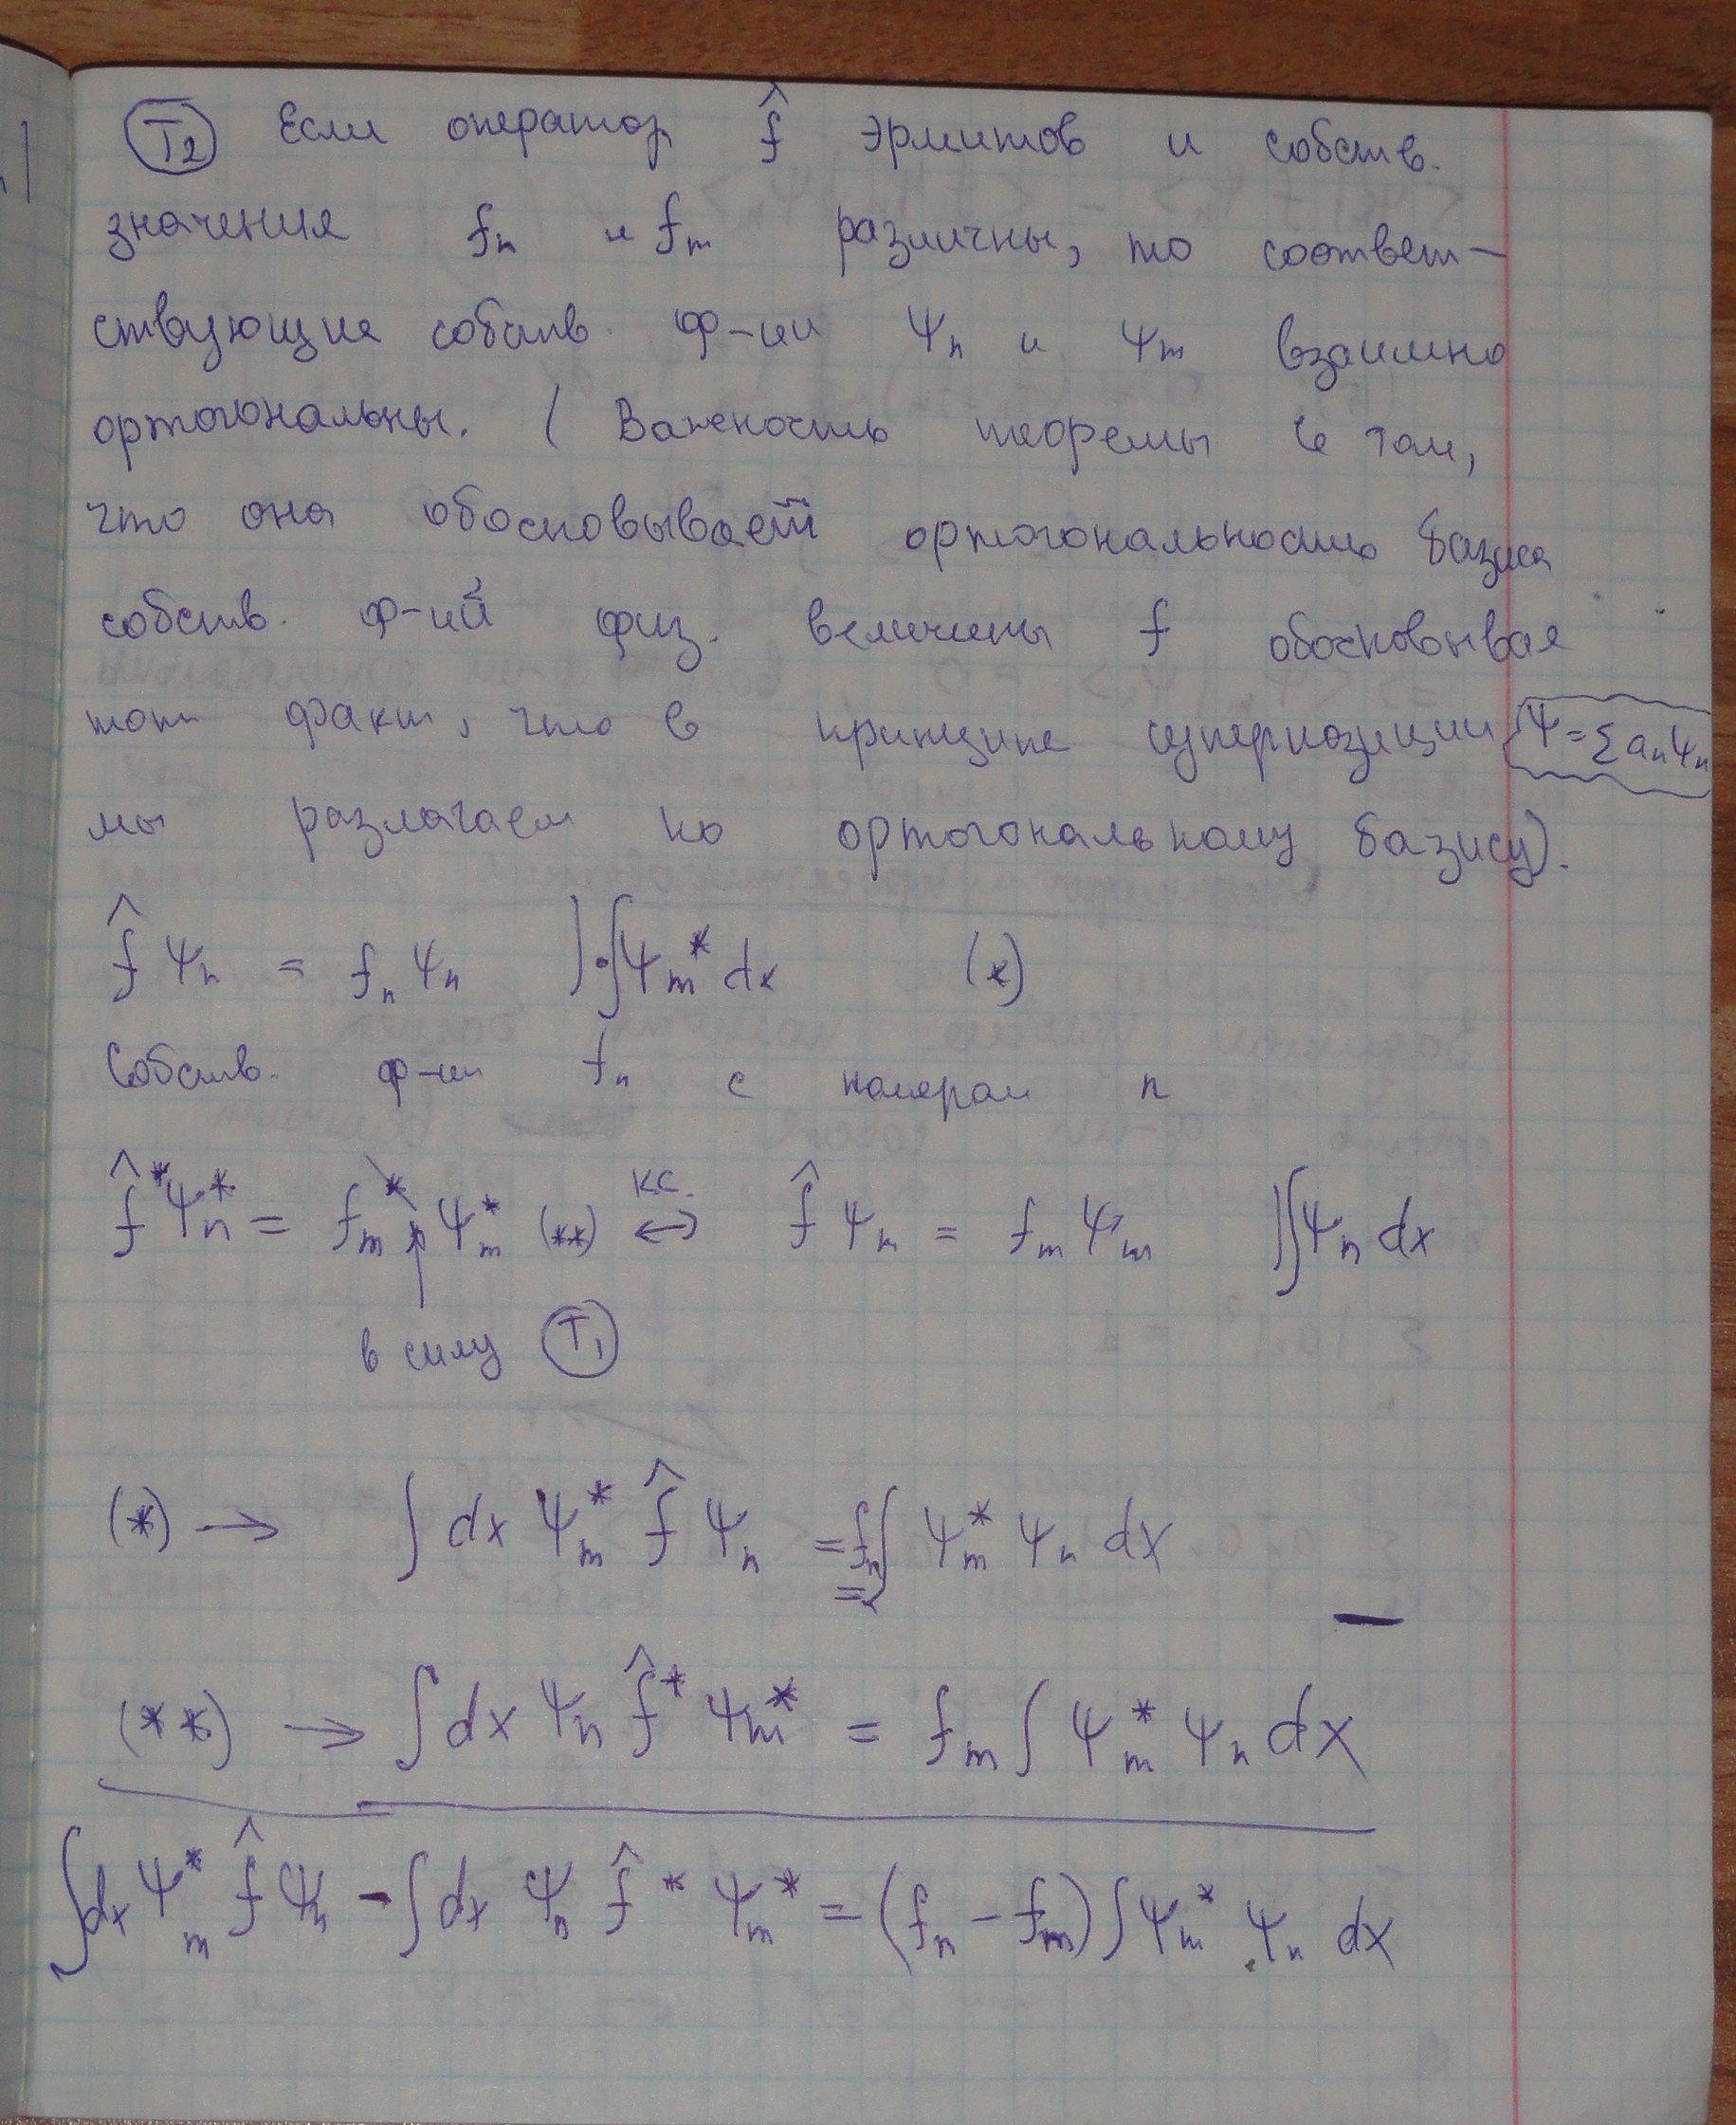 T₂ Если оператор f̂ эрмитов и собств.
значения fₙ и fₘ различны, то соответ-
ствующие собств. ф-ии Ψₙ и Ψₘ взаимно
ортогональны. ( Важность теоремы в том,
что она обосновывает ортогональность базиса
собств. ф-ий физ. величины f обосновывая
тот факт, что в принципе суперпозиции Ψ = Σ aₙ Ψₙ
мы разлагаем по ортогональному базису).
f̂ Ψₙ = fₙ Ψₙ | · ∫Ψₘ* dx (*)
Собств. ф-ии fₙ с номером n
f̂* Ψₙ* = fₘ* Ψₘ* (**) ↔ к.с. f̂ Ψₘ = fₘ Ψₘ | ∫Ψₙ dx
в силу T₁
(*) → ∫ dx Ψₘ* f̂ Ψₙ = fₙ ∫ Ψₘ* Ψₙ dx
—
(**) → ∫ dx Ψₙ f̂* Ψₘ* = fₘ ∫ Ψₘ* Ψₙ dx
∫ dx Ψₘ* f̂ Ψₙ - ∫ dx Ψₙ f̂* Ψₘ* = (fₙ - fₘ) ∫ Ψₘ* Ψₙ dx